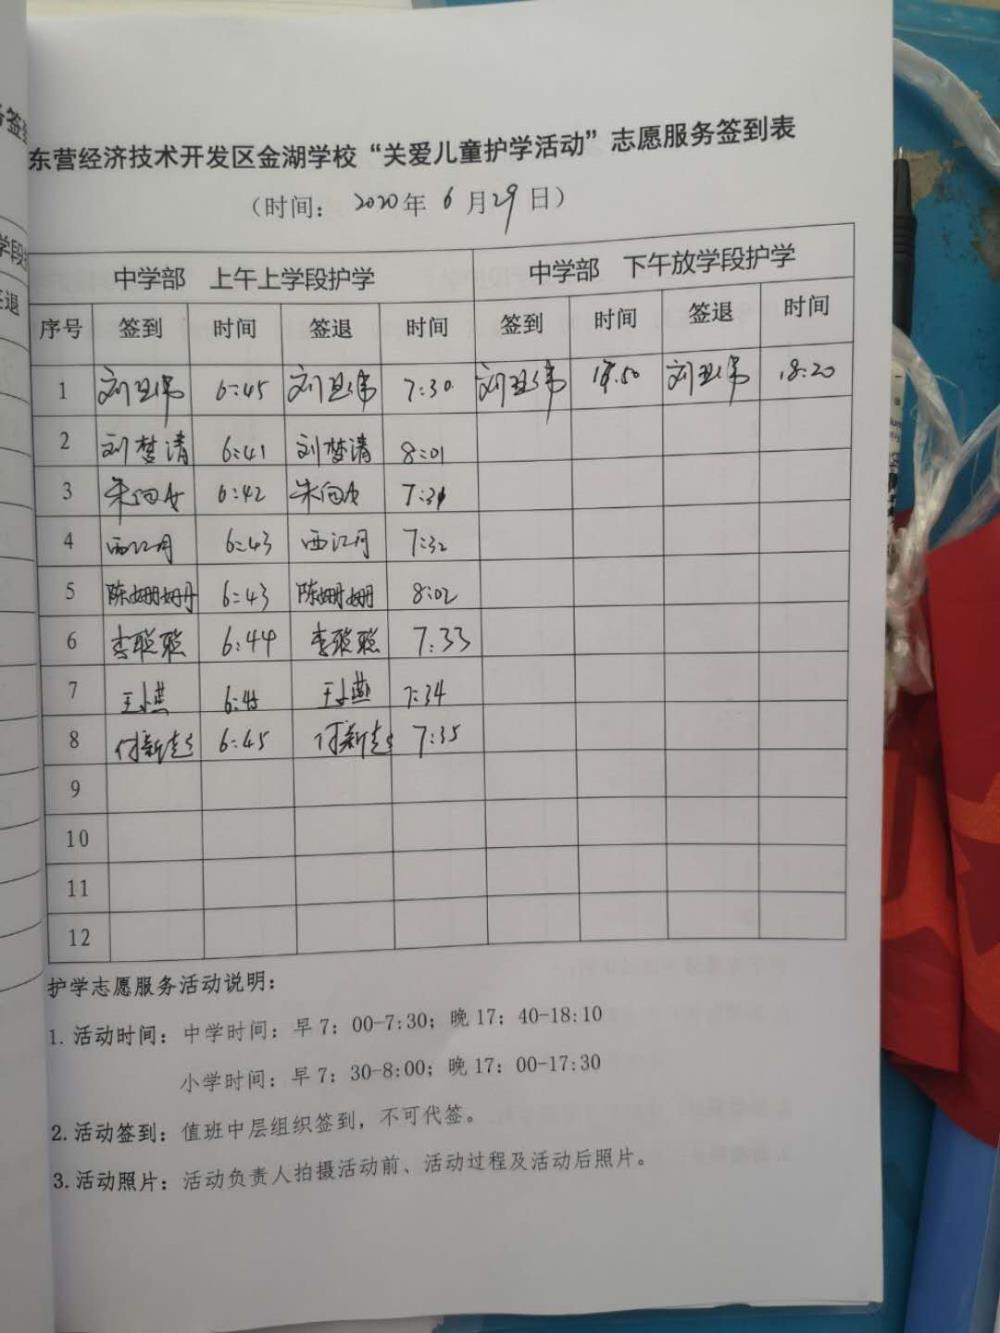 东营经济技术开发区金湖学校“关爱儿童护学活动”志愿服务签到表
（时间： 2020年 6月29日）
中学部 上午上学段护学 中学部 下午放学段护学
序号 签到 时间 签退 时间 签到 时间 签退 时间
1 6:45 7:30 18:20
2 刘梦清 6:41 刘梦清 8:01
3 6:42 7:31
4 西江月 6:43 西江月 7:32
5 陈姗姗 6:43 陈姗姗 8:02
6 李聪聪 6:44 李聪聪 7:33
7 王小燕 6:45 王小燕 7:34
8 付新超 6:45 付新超 7:35
9
10
11
12
护学志愿服务活动说明：
1. 活动时间：中学时间：早7：00-7:30；晚17；40-18:10
小学时间：早7；30-8:00；晚17：00-17:30
2. 活动签到；值班中层组织签到，不可代签。
3. 活动照片：活动负责人拍摄活动前、活动过程及活动后照片。